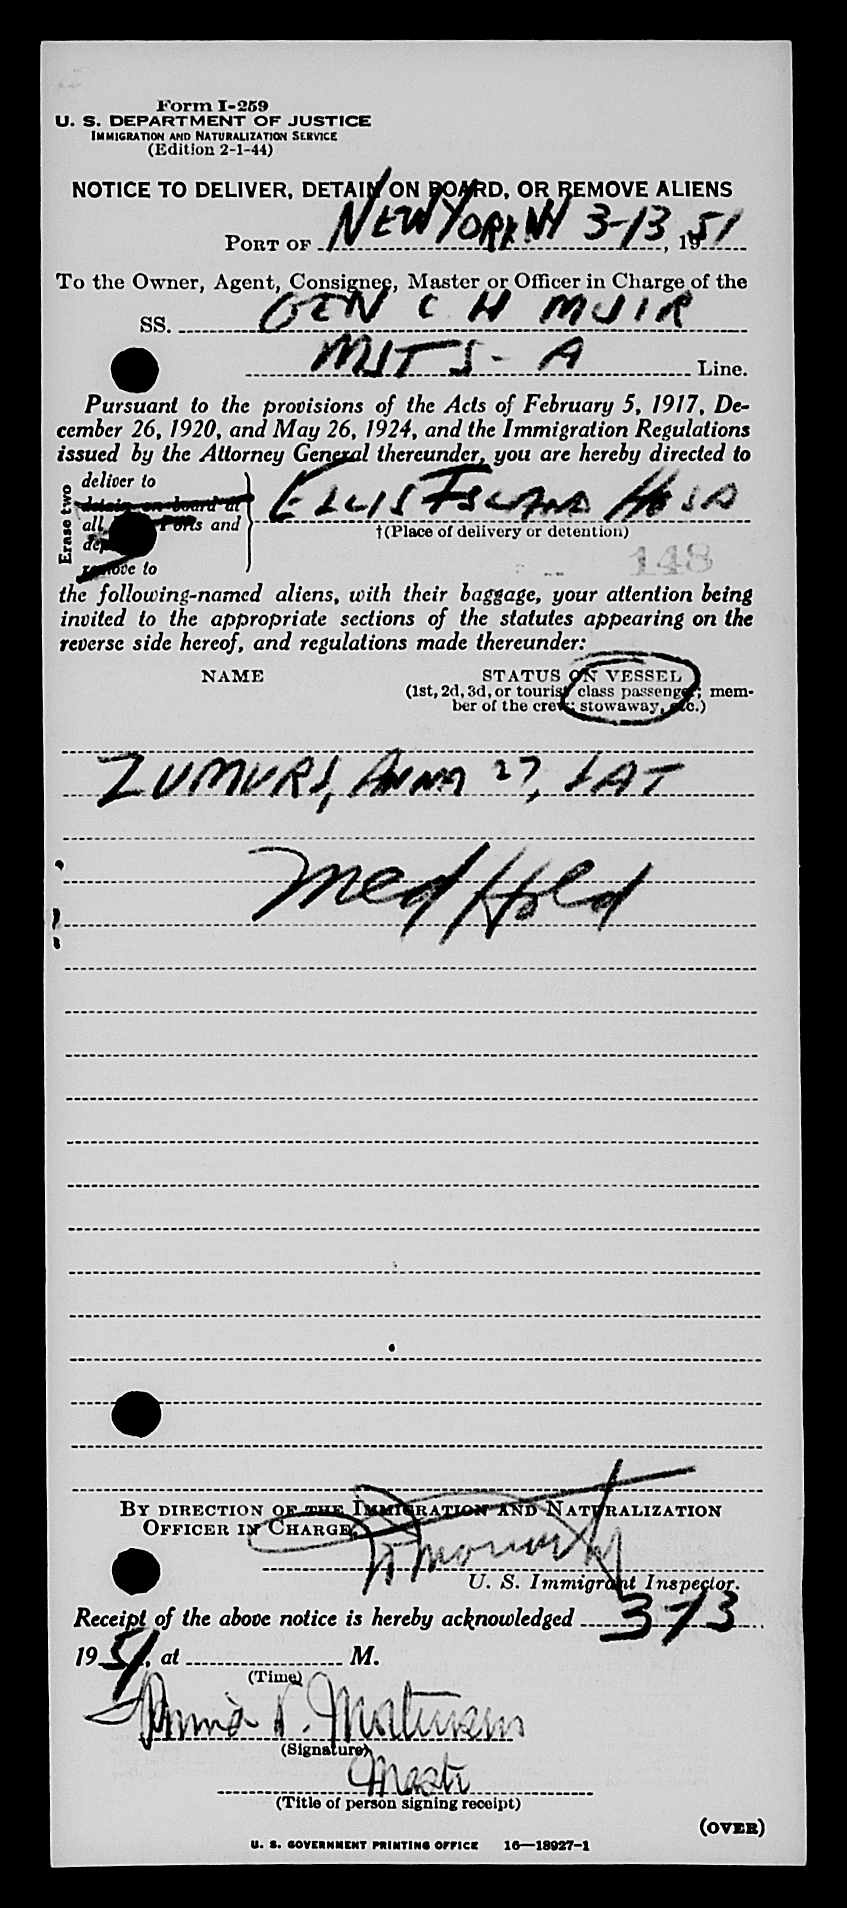 Form I-259
U. S. DEPARTMENT OF JUSTICE
IMMIGRATION AND NATURALIZATION SERVICE
(Edition 2-1-44)
NOTICE TO DELIVER, DETAIN ON BOARD, OR REMOVE ALIENS
PORT OF NEW YORK NY 3-13, 1951
To the Owner, Agent, Consignee, Master or Officer in Charge of the
SS. GEN C H MUIR
MSTS - A Line.
Pursuant to the provisions of the Acts of February 5, 1917, De-
cember 26, 1920, and May 26, 1924, and the Immigration Regulations
issued by the Attorney General thereunder, you are hereby directed to
Erase two
deliver to
detain on board at
all Ports and
remove to
ELLIS ISLAND HOSP
†(Place of delivery or detention)
148
the following-named aliens, with their baggage, your attention being
invited to the appropriate sections of the statutes appearing on the
reverse side hereof, and regulations made thereunder:
NAME STATUS ON VESSEL
(1st, 2d, 3d, or tourist class passenger; mem-
ber of the crew; stowaway, etc.)
ZUMURS, ANNA 27, LAT
Med Hold
BY DIRECTION OF THE IMMIGRATION AND NATURALIZATION
OFFICER IN CHARGE,
U. S. Immigrant Inspector.
Receipt of the above notice is hereby acknowledged 3-13
1951, at M.
(Time)
(Signature)
(Title of person signing receipt)
(OVER)
U. S. GOVERNMENT PRINTING OFFICE 16—18927-1